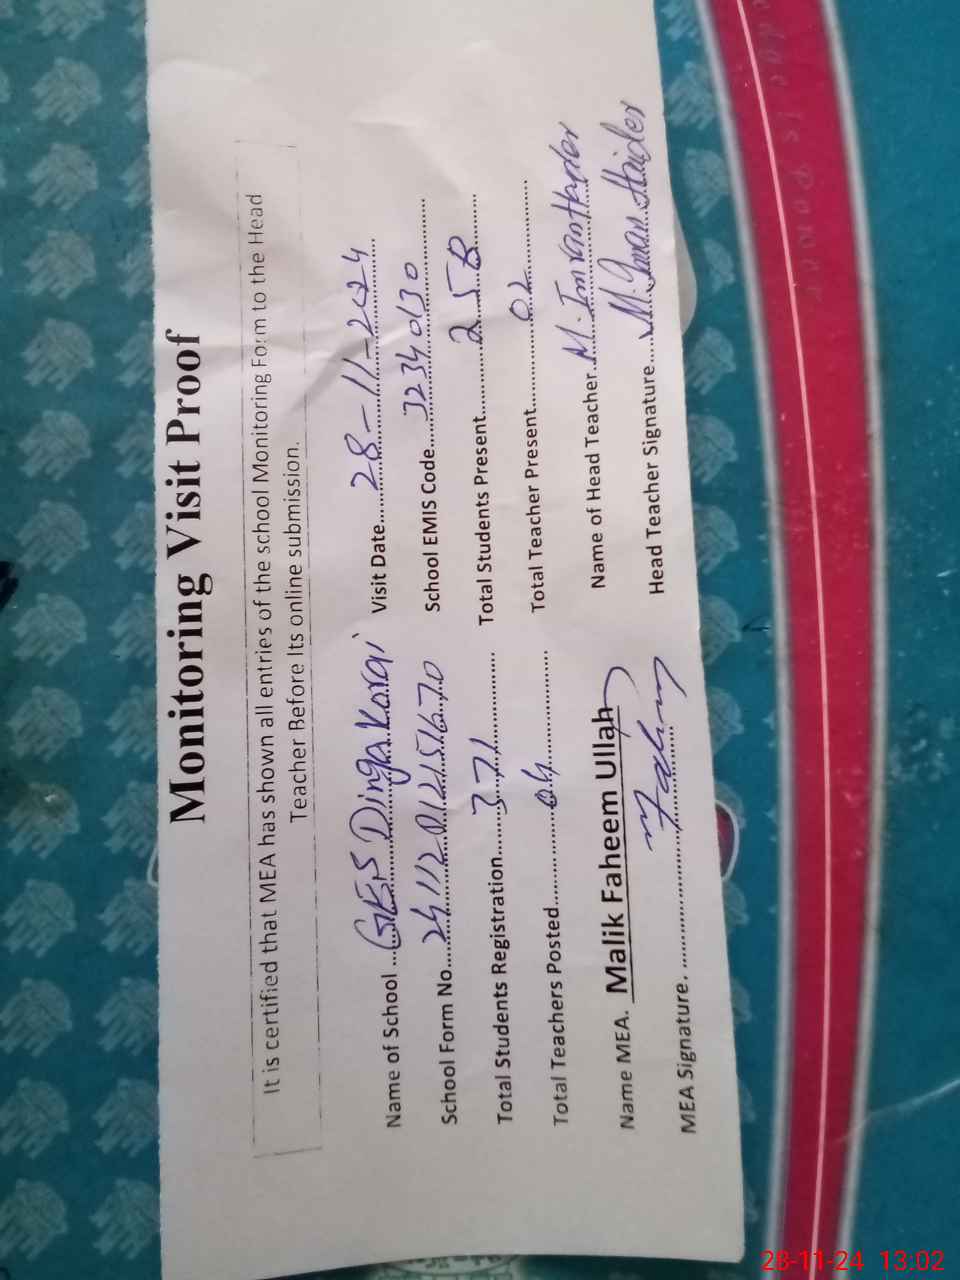 Monitoring Visit Proof
It is certified that MEA has shown all entries of the school Monitoring Form to the Head
Teacher Before Its online submission.
Name of School ...GES Dinga Korai Visit Date......28-11-2024
School Form No......241120121515670 School EMIS Code......32340130
Total Students Registration......371 Total Students Present......258
Total Teachers Posted......04 Total Teacher Present......02
Name MEA. Malik Faheem Ullah Name of Head Teacher..M. Imran Haider
MEA Signature. ......Fahim Head Teacher Signature....M. Imran Haider
28-11-24 13:02